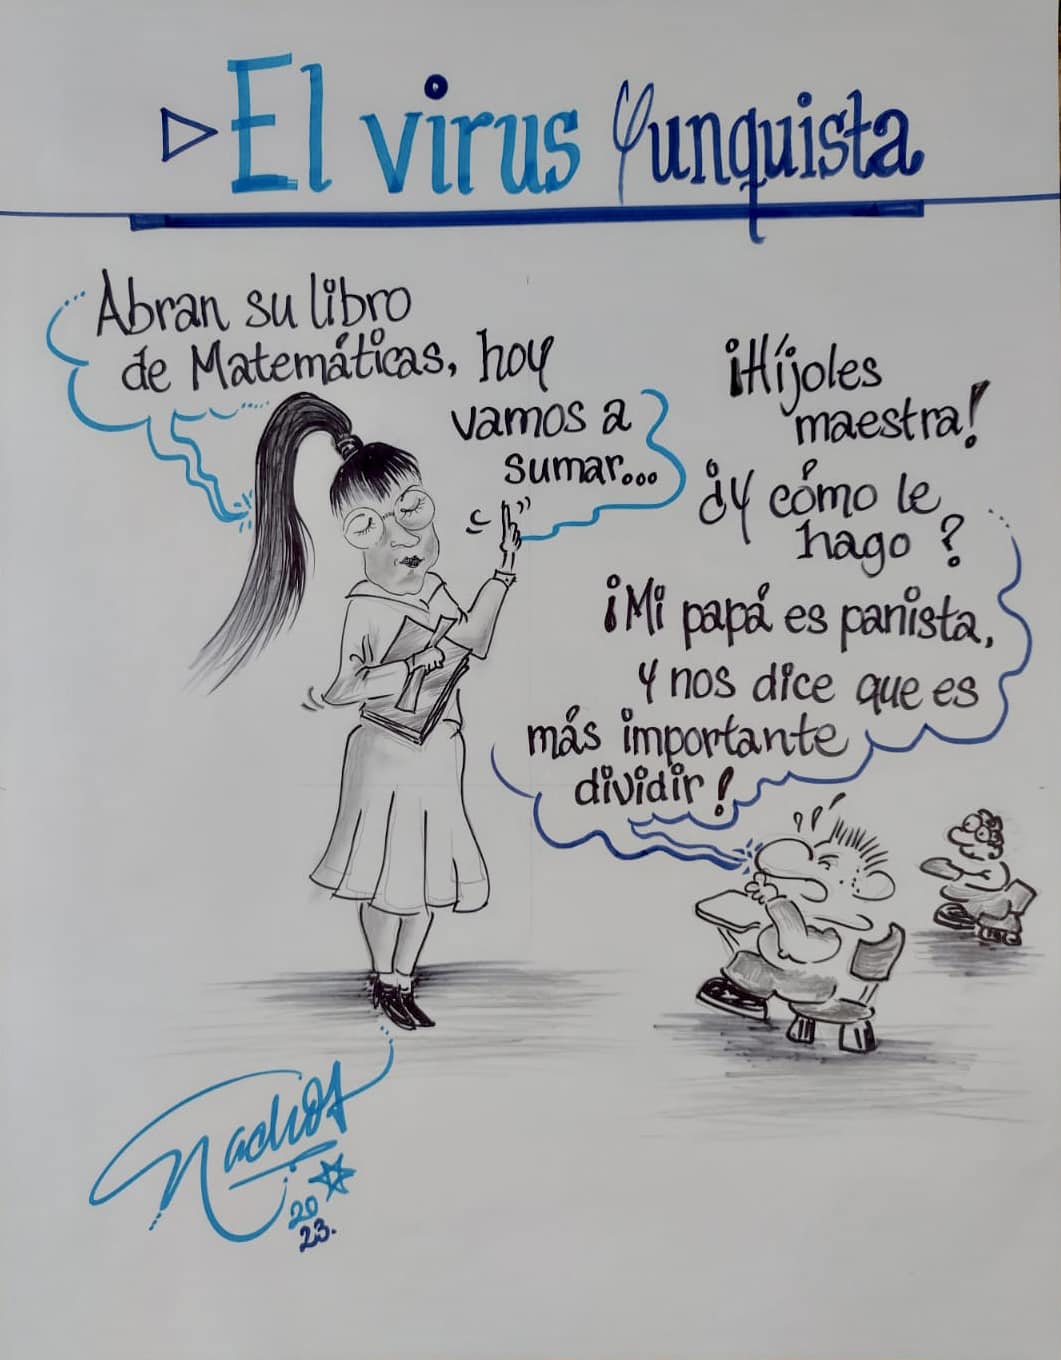 El virus Yunquista
Abran su libro
de Matemáticas, hoy
vamos a
sumar...
¡Híjoles
maestra!
¿Y cómo le
hago?
¡Mi papá es panista,
y nos dice que es
más importante
dividir!
Nachos
20
23.